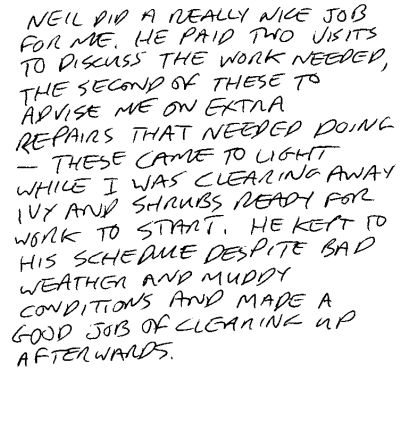 NEIL DID A REALLY NICE JOB
FOR ME. HE PAID TWO VISITS
TO DISCUSS THE WORK NEEDED,
THE SECOND OF THESE TO
ADVISE ME ON EXTRA
REPAIRS THAT NEEDED DOING
— THESE CAME TO LIGHT
WHILE I WAS CLEARING AWAY
IVY AND SHRUBS READY FOR
WORK TO START. HE KEPT TO
HIS SCHEDULE DESPITE BAD
WEATHER AND MUDDY
CONDITIONS AND MADE A
GOOD JOB OF CLEARING UP
AFTERWARDS.